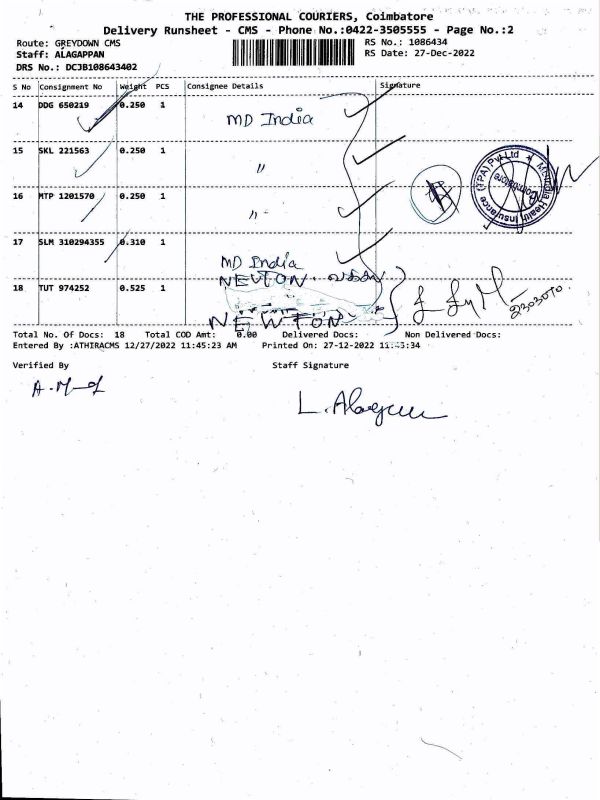 THE PROFESSIONAL COURIERS, Coimbatore
Delivery Runsheet - CMS - Phone No.:0422-3505555 - Page No.:2
Route: GREYDOWN CMS
RS No.: 1086434
Staff: ALAGAPPAN
RS Date: 27-Dec-2022
DRS No.: DCJB108643402
S No Consignment No Weight PCS Consignee Details Signature
14 DDG 650219 0.250 1
MD India
15 SKL 221563 0.250 1
"
16 MTP 1201570 0.250 1
"
Mdindia Health Insurance (TPA) Pvt Ltd
Coimbatore
17 SLM 310294355 0.310 1
MD India
NEWTON.
18 TUT 974252 0.525 1
NEWTON
Total No. Of Docs: 18 Total COD Amt: 0.00 Delivered Docs: Non Delivered Docs:
Entered By :ATHIRACMS 12/27/2022 11:45:23 AM Printed On: 27-12-2022 11:45:34
Verified By Staff Signature
L. Alagu